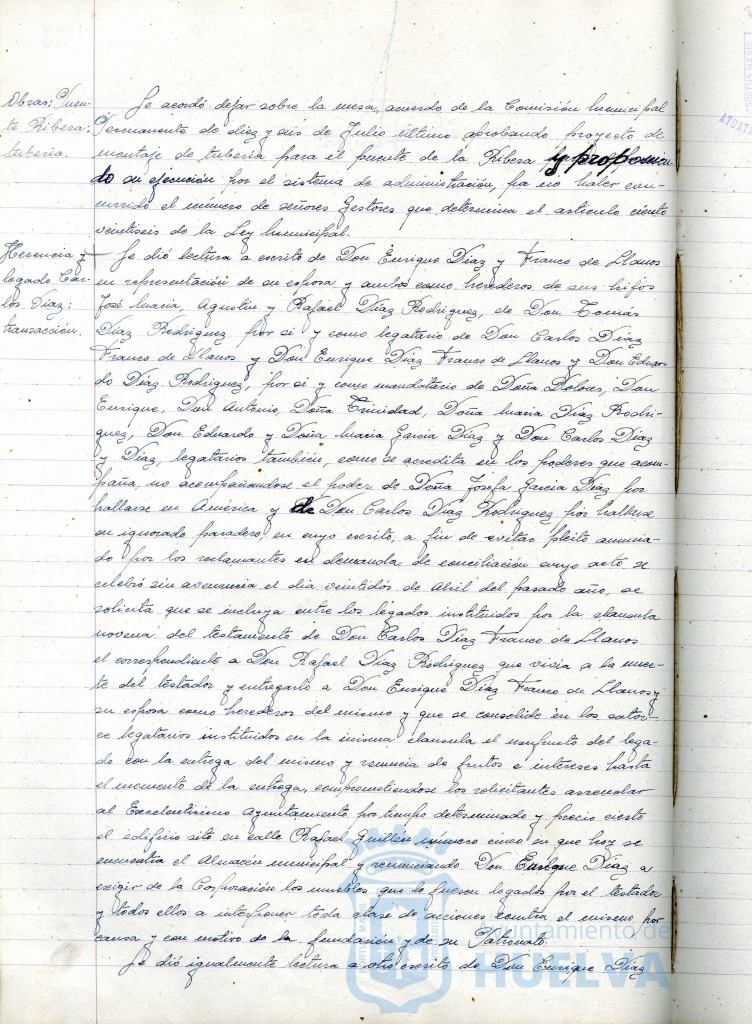 Obras: Puen-
te Ribera:
tubería.
Se acordó dejar sobre la mesa, acuerdo de la Comisión municipal
Permanente de diez y seis de Julio último aprobando proyecto de
montaje de tubería para el puente de la Ribera y proponien-
do su ejecución por el sistema de administración, por no haber con-
currido el número de señores Gestores que determina el artículo ciento
veintiseis de la Ley municipal.
Herencia y
legado Car-
los Díaz:
transacción.
Se dió lectura a escrito de Don Enrique Díaz y Franco de Llanos
en representación de su esposa y ambos como herederos de sus hijos
José María, Agustín y Rafael Díaz Rodríguez, de Don Tomás
Díaz Rodríguez por si y como legatario de Don Carlos Díaz
Franco de Llanos y Don Enrique Díaz Franco de Llanos y Don Eduar-
do Díaz Rodríguez, por si y como mandatario de Doña Dolores, Don
Enrique, Don Antonio, Doña Trinidad, Doña María Díaz Rodrí-
guez, Don Eduardo y Doña María García Díaz y Don Carlos Díaz
y Díaz, legatarios también, como se acredita en los poderes que acom-
paña, no acompañandose el poder de Doña Josefa García Díaz por
hallarse en América y de Don Carlos Díaz Rodríguez por hallarse
en ignorado paradero, en cuyo escrito, a fin de evitar pleito anuncia-
do por los reclamantes en demanda de conciliación cuyo acto se
celebró sin avenencia el día veintidós de Abril del pasado año, se
solicita que se incluya entre los legados instituidos por la clausula
novena del testamento de Don Carlos Díaz Franco de Llanos
el correspondiente a Don Rafael Díaz Rodríguez que vivía a la muer-
te del testador y entregarlo a Don Enrique Díaz Franco de Llanos y
su esposa como herederos del mismo y que se consolide en los cator-
ce legatarios instituidos en la misma clausula el usufruto del lega-
do con la entrega del mismo y renuncia de frutos e intereses hasta
el momento de la entrega, comprometiendose los solicitantes arrendar
al Excelentísimo Ayuntamiento por tiempo determinado y precio cierto
el edificio sito en calle Rafael Guillén número cinco en que hoy se
encuentra el Almacén municipal y renunciando Don Enrique Díaz a
exigir de la Corporación los muebles que le fueron legados por el testador
y todos ellos a interponer toda clase de acciones contra el mismo por
causa y con motivo de la fundación y de su Patronato.
Se dió igualmente lectura a otro escrito de Don Enrique Díaz
Ayuntamiento de
HUELVA